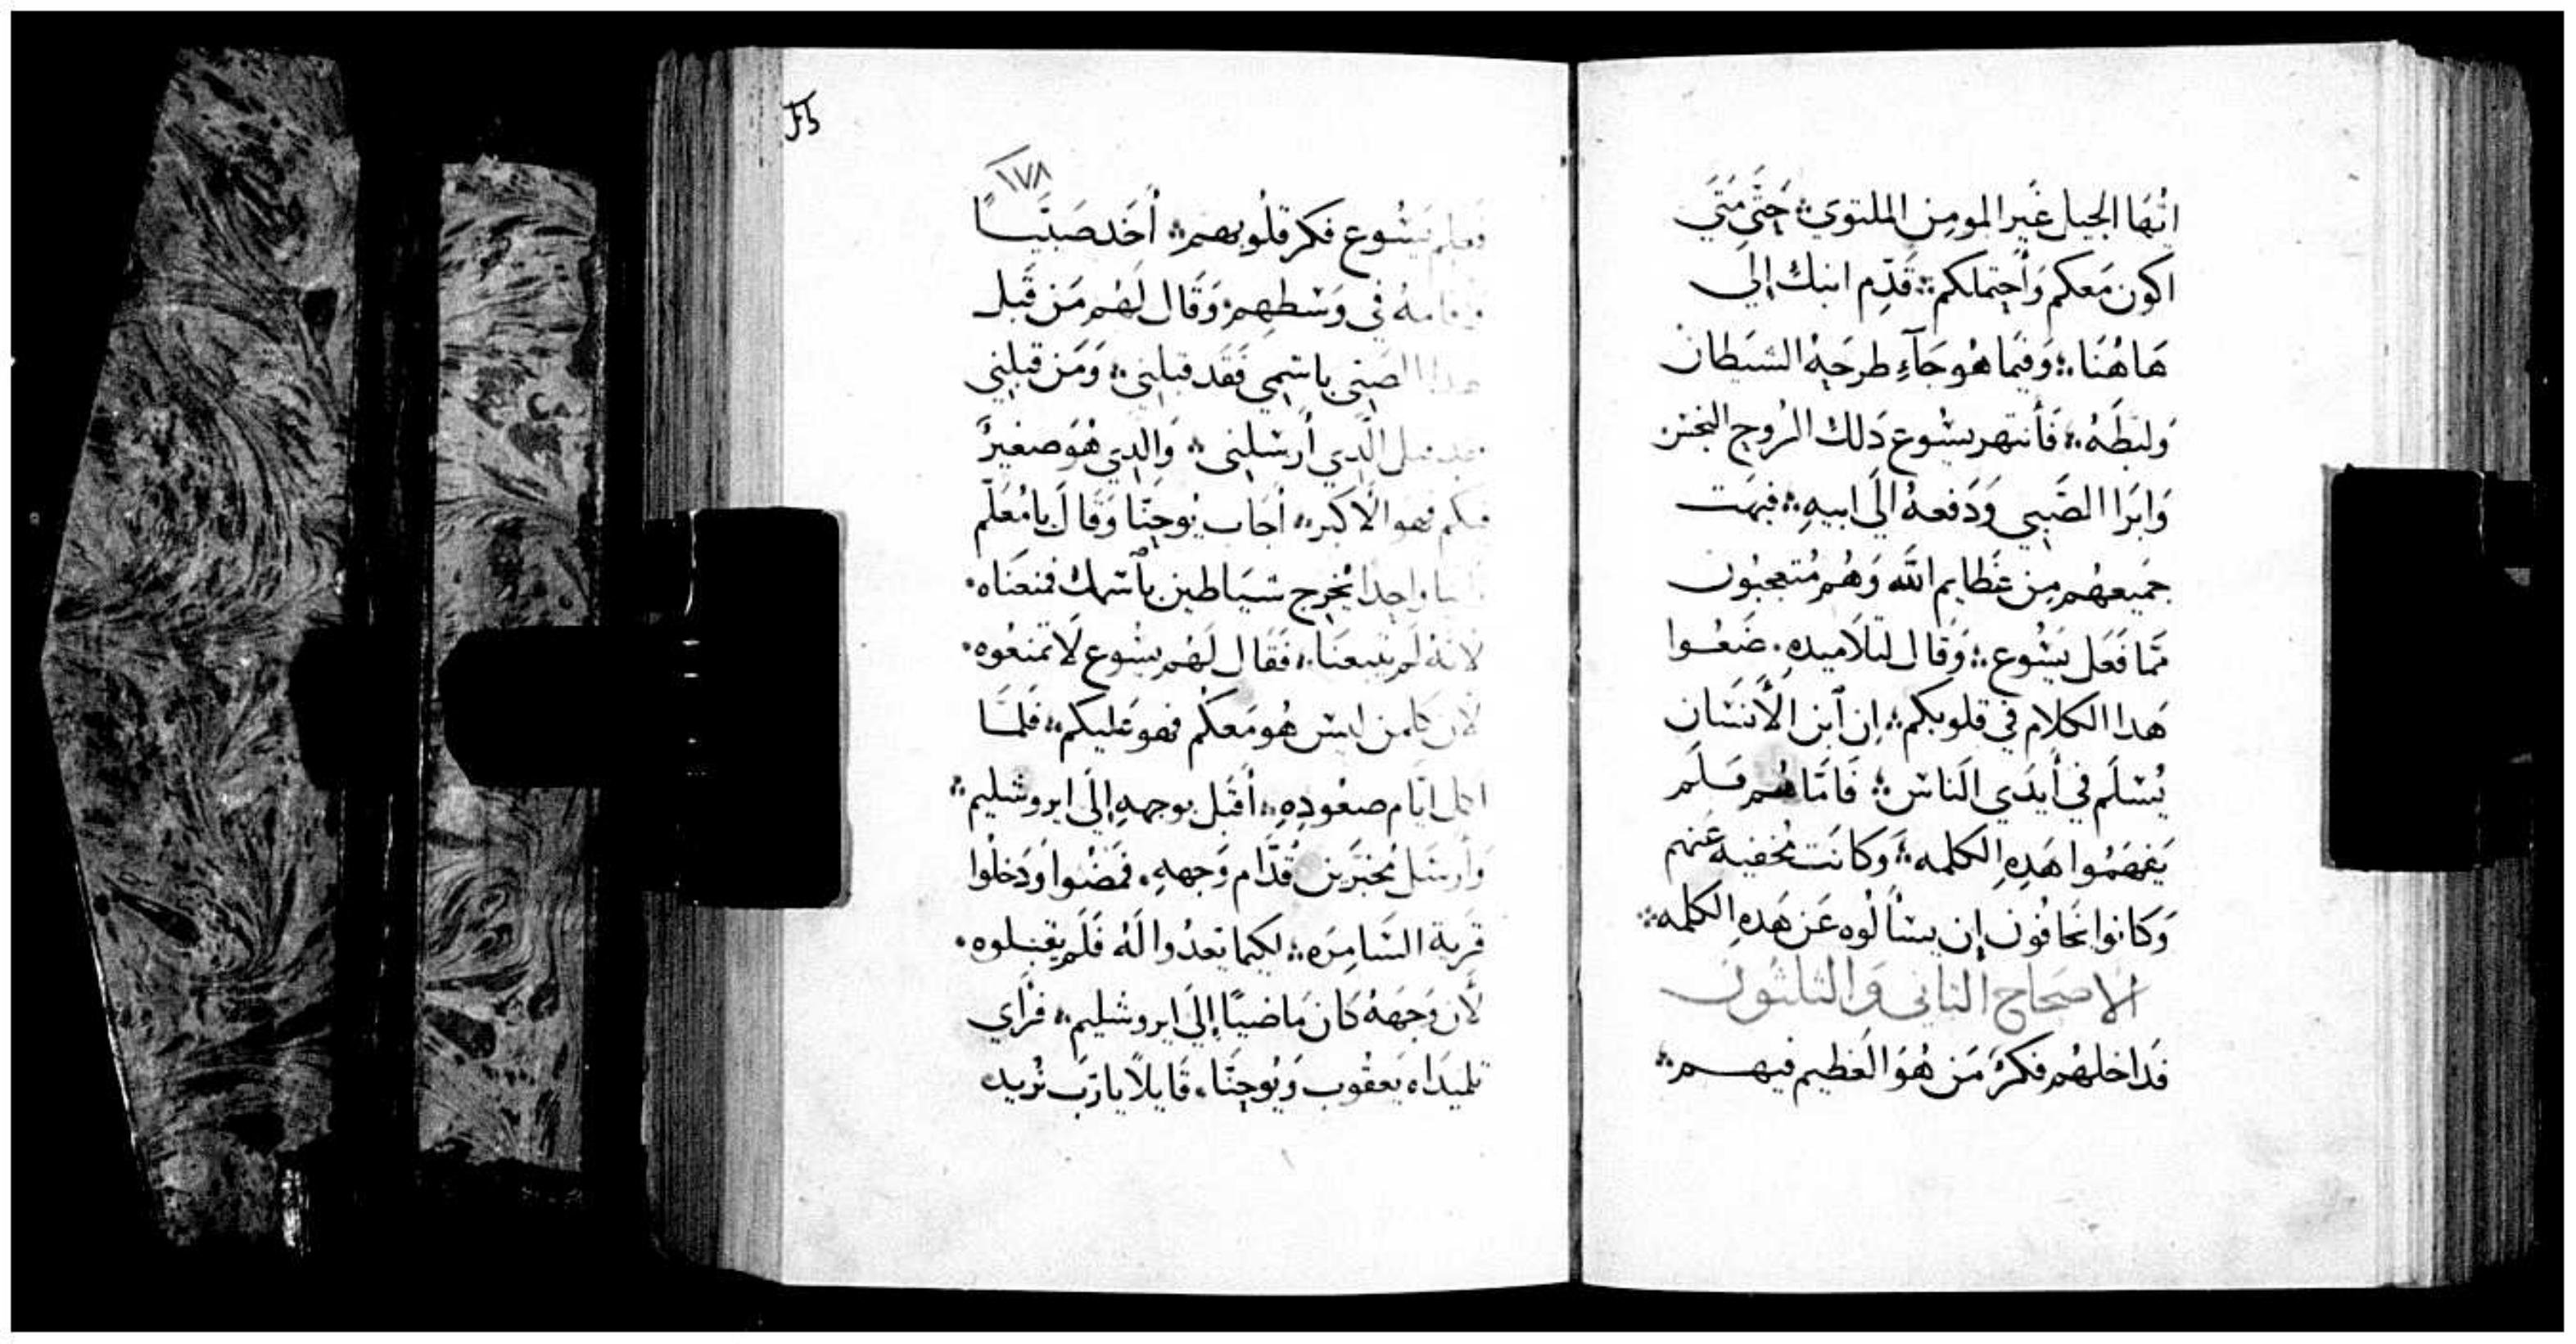 ايُّهَا الجيل غَير المومِن الملتوي؞ حَتَّي مَتَي
اكون مَعكم وَأَحتِملكم؞ قَدِّم ابنك إلَي
هَاهُنَا؞ وَفيَما هُو جَآءِ طرحَهُ الشيَطان
وَلبَطَهُ؞ فَأنتهر يسُوع دَلك الرُوح النجِسْ
وَابَرا الصَّبِي وَدَفعهُ الَي ابيهِ؞ فبهَت
جَميعهُم مِن عَظَايم اللَّه وَهُم مُتعجبُون
مَّما فَعَل يَسُوع؞ وَقَال لتلَاميدهِ. ضَعُوا
هَدا الكلام في قلوبكم؞ إن آبن الأَنسَان
يُسْلَم في أَيدَي الَناسْ؞ فَامَّا هُم فَلَم
يَفهَمُوا هَدِهِ الكلمه؞ وَكانَت مُخفيه عَنهم
وَكانوا يَخافُون إن يسْألُوه عَن هَدهِ الكلمه؞
الاصحَاح التاني وَالتلتون
فَداخلهُم فكرٌ مَن هُوَ العَظيم فيهم؞
١٧٨
فعلم يَسُوع فكر قلُوبهم؞ أَخَد صَبيًّا
وَاقامهُ في وَسْطهِم وَقَال لَهُم مَن قَبل
هدا الصَبي باسْمِي فَقَد قبلِني؞ وَمَن قبلِني
فقد قبل الَّدِي أَرسْلِني؞ وَالدِي هُوَ صغيرٌ
فيكم فهو الَاكبر؞ أَجَاب يُوحَنّا وَقَالَ يامُعَلّم
رَاينا واحِدا يُخرِج شيَاطين بآسْمك فمنعنَاه.
لانهُ لَم يتبعنَا؞ فَقَال لَهُم يسُوع لَا تمنعُوه.
لأن كلمن ليسْ هُو مَعكُم فهو عَليكم؞ فَلمَّا
اكمل ايَّام صعُودِهِ؞ أَقبَل بوجههِ إلَي ايروشليم؞
وَأَرسَل مُخبّرَين قُدَّام وَجههِ. فمضُوا وَدَخلُوا
قَرية السَامِرَه؞ لكيما يَعدُوا لَهُ فَلَم يقبلوه.
لأَن وَجهَهُ كَان مَاضيًا إلَي ايروشليم؞ فرَأي
تلميدَاه يَعقُوب وَيُوحنَّا. قَايلاً يارَبّ تُريد